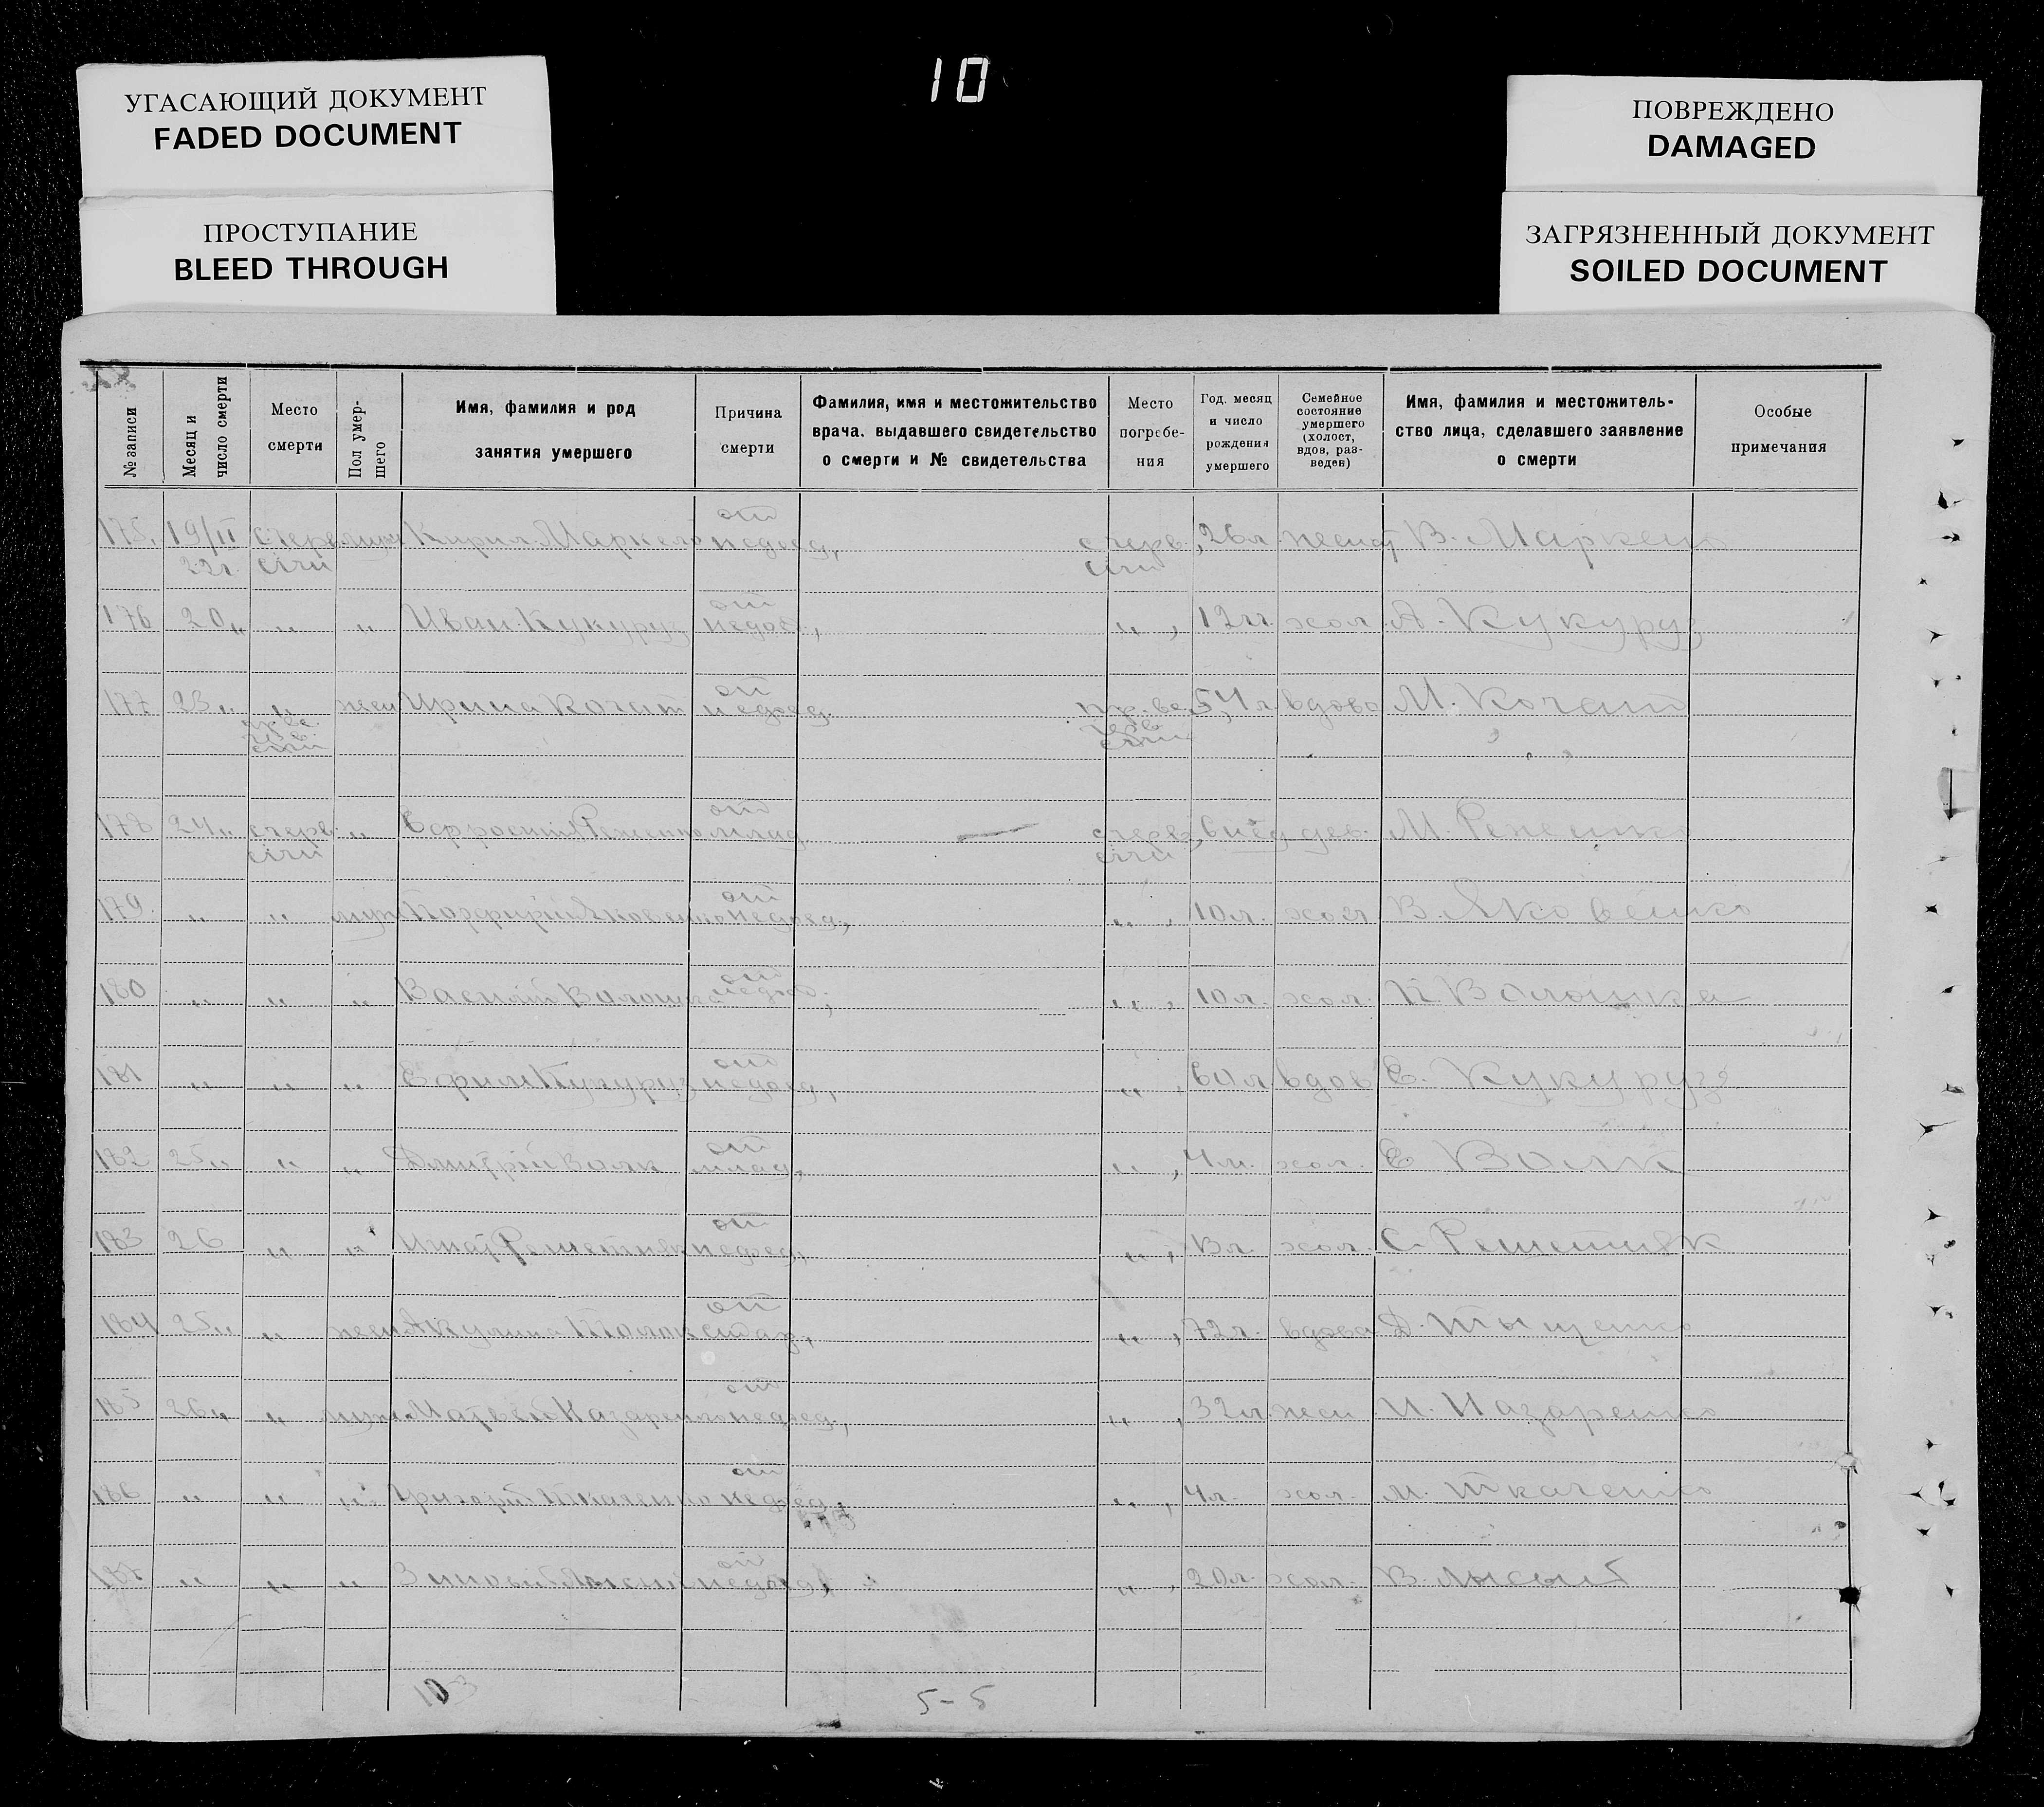 УГАСАЮЩИЙ ДОКУМЕНТ
FADED DOCUMENT
ПРОСТУПАНИЕ
BLEED THROUGH
10
ПОВРЕЖДЕНО
DAMAGED
ЗАГРЯЗНЕННЫЙ ДОКУМЕНТ
SOILED DOCUMENT
№ записи
Месяц и число смерти
Место смерти
Пол умер-шего
Имя, фамилия и род занятия умершего
Причина смерти
Фамилия, имя и местожительство врача, выдавшего свидетельство о смерти и № свидетельства
Место погребе-ния
Год, месяц и число рождения умершего
Семейное состояние умершего (холост, вдов, раз-веден)
Имя, фамилия и местожитель-ство лица, сделавшего заявление о смерти
Особые примечания
175 19/II 22г. Кирил от недоед. 26л В.
176 20 " " " Иван Кукуруз от недоед. " 12л. хол. А. Кукуруз
177 23 " " жен Ирина Кочат от недоед. 54л вдова М. Кочат
178 24 " " от млад. 6 нед дев. М.
179 " " муж Яковенко от недоед. " 10л. хол. В. Яковенко
180 " " " Василий Волошка от недоед. " 10л. хол. Волошка
181 " " " Ефим Кукуруз от недоед. " 60л вдов Е. Кукуруз
182 25 " " " Дмитрий Волк от млад. " 4м. хол. Е Волк
183 26 " " Игнат Решетняк от недоед. " хол. С. Решетняк
184 25 " " жен Акулина от стар. " 72л. вдова Д. Тыщенко
185 26 " " муж Матвей Назаренко от недоед. " 32л. жен И. Назаренко
186 " " " Григорий Ткаченко от недоед. " 4л. хол. М. Ткаченко
187 " " " Зиновий Лысый от недоед. " 20л хол. В. Лысый
103
5-5